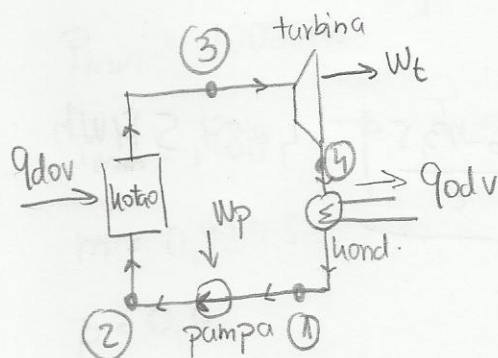 turbina
3
Wt
4
qdov
kotao
Wp
qodv
kond.
2
pumpa
1